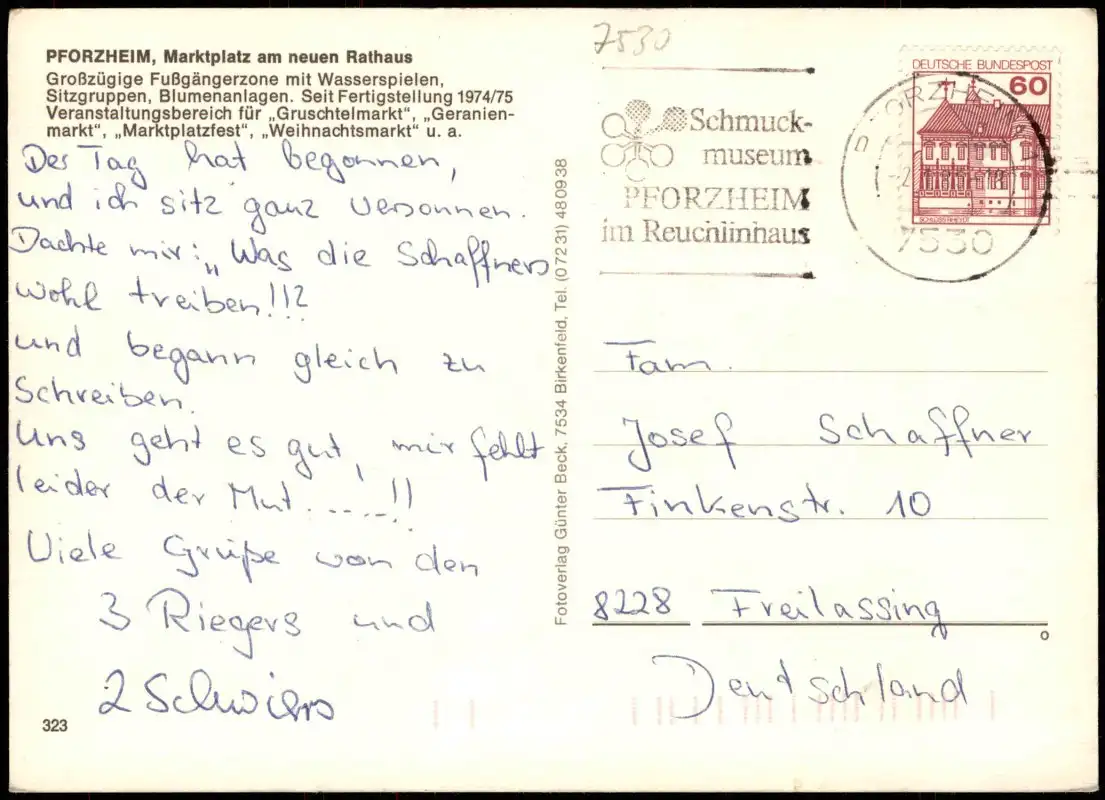 PFORZHEIM, Marktplatz am neuen Rathaus
Großzügige Fußgängerzone mit Wasserspielen,
Sitzgruppen, Blumenanlagen. Seit Fertigstellung 1974/75
Veranstaltungsbereich für „Gruschtelmarkt“, „Geranien-
markt“, „Marktplatzfest“, „Weihnachtsmarkt“ u. a.
Der Tag hat begonnen,
und ich sitz ganz versonnen.
Dachte mir: „Was die Schaffners
wohl treiben!!?
und begann gleich zu
Schreiben.
Uns geht es gut, mir fehlt
leider der Mut......!!
Viele Grüße von den
3 Riegers und
2 Schwiers
323
Fotoverlag Günter Beck, 7534 Birkenfeld, Tel. (07231) 480938
7530
Schmuck-
museum
PFORZHEIM
im Reuchlinhaus
PFORZHEIM
7530
DEUTSCHE BUNDESPOST
60
SCHLOSS RHEYDT
Fam.
Josef Schaffner
Finkenstr. 10
8228 Freilassing
Deutschland